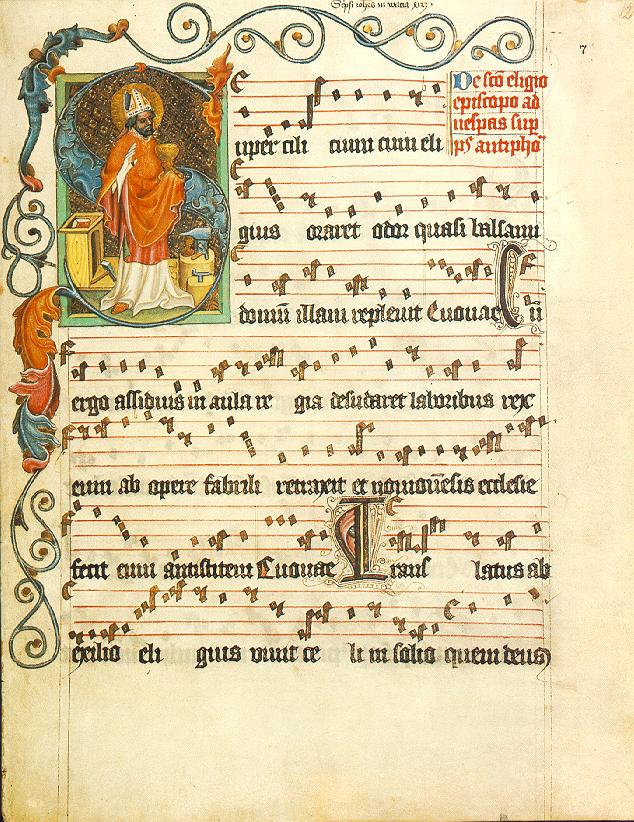 De scō eligio
episcopo ad
uespas sup
ps antipho
Super cili cium cum eli
gius oraret odor quasi balsami
domū illam repleuit Euouae Cū
ergo assiduus in aula re gia desudaret laboribus rex
eum ab opere fabrili retraxit et nouiomēsis ecclesie
fecit eum antistitem Euouae Trans latus ab
exilio eli gius uiuit ce li in solio quem deus
7